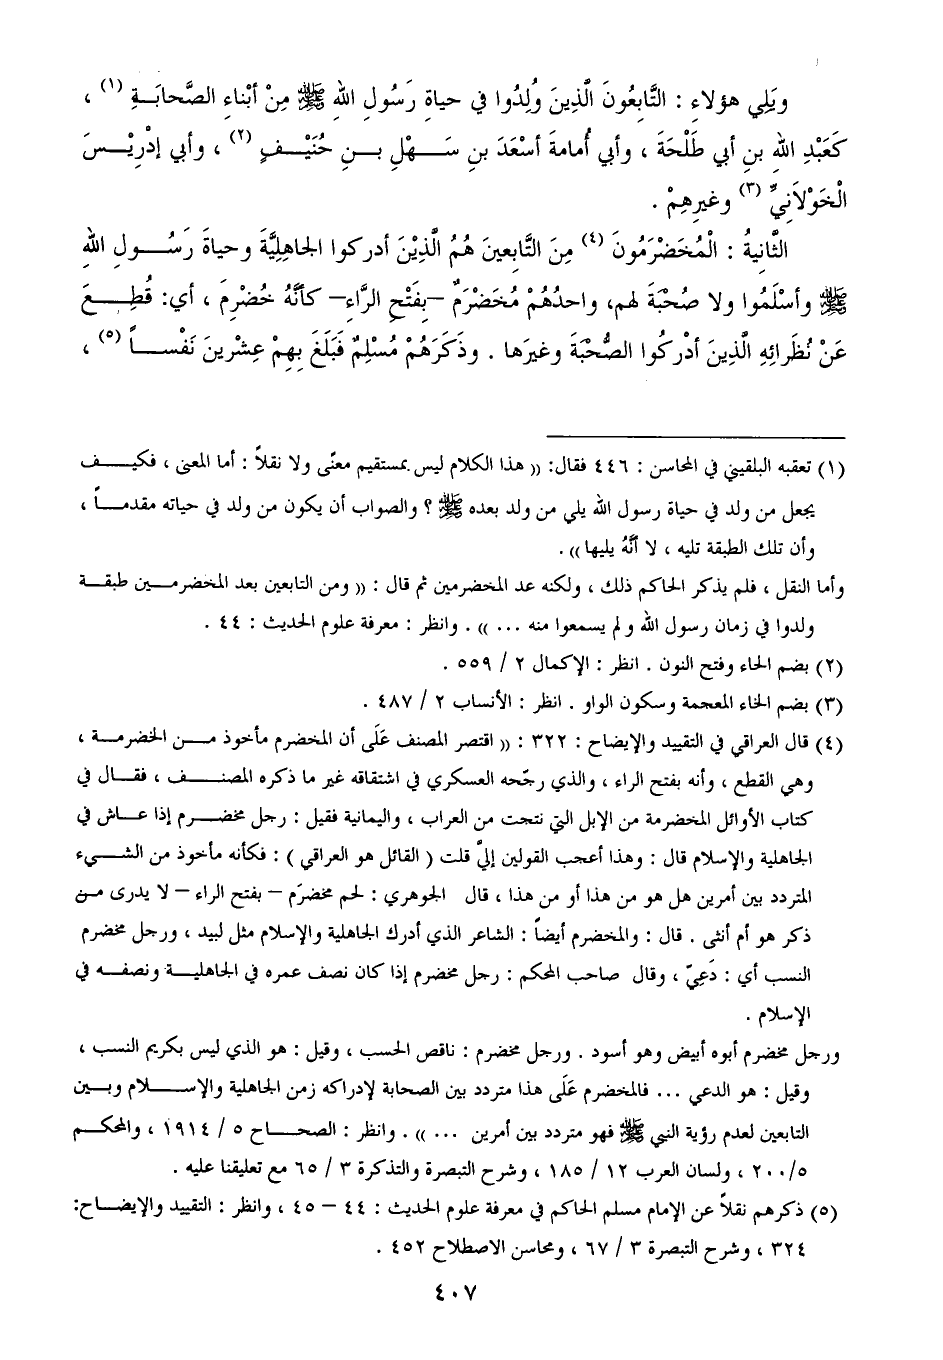 ويَلِي هؤلاءِ : التَّابِعُونَ الَّذِينَ وُلِدُوا في حياةِ رَسُولِ اللهِ ﷺ مِنْ أبْناءِ الصَّحابَـةِ (١) ،
كَعَبْدِ اللهِ بنِ أبي طَلْحَةَ ، وأبي أُمامةَ أسْعَدَ بنِ سَـهْلِ بـنِ حُنَيْـفٍ (٢) ، وأبي إدْرِيْـسَ
الْخَوْلاَنِيِّ (٣) وغيرِهِمْ .
الثَّانيةُ : الْمُخَضْرَمُونَ (٤) مِنَ التَّابعينَ هُمُ الَّذِيْنَ أدركوا الجاهِلِيَّةَ وحياةَ رَسُـولِ اللهِ
ﷺ وأسْلَمُوا ولا صُحْبَةَ لهم، واحدُهُمْ مُخَضْرَمٌ –بِفَتْحِ الرَّاءِ– كأنَّهُ خُضْرِمَ ، أي: قُطِـعَ
عَنْ نُظَرائِهِ الَّذِينَ أدْرَكُوا الصُّحْبَةَ وغيرَها . وذَكَرَهُمْ مُسْلِمٌ فَبَلَغَ بِهِمْ عِشْرينَ نَفْسـاً (٥) ،
(١) تعقبه البلقيني في المحاسن : ٤٤٦ فقال: (( هذا الكلام ليس بمستقيم معنًى ولا نقلاً : أما المعنى ، فكيـف
يجعل من ولد في حياة رسول الله يلي من ولد بعده ﷺ ؟ والصواب أن يكون من ولد في حياته مقدمـاً ،
وأن تلك الطبقة تليه ، لا أنَّهُ يليها )) .
وأما النقل ، فلم يذكر الحاكم ذلك ، ولكنه عد المخضرمين ثم قال : (( ومن التابعين بعد المخضرمـين طبقـة
ولدوا في زمان رسول الله ولم يسمعوا منه ... )) . وانظر : معرفة علوم الحديث : ٤٤ .
(٢) بضم الحاء وفتح النون . انظر : الإكمال ٢ / ٥٥٩ .
(٣) بضم الخاء المعجمة وسكون الواو . انظر : الأنساب ٢ / ٤٨٧ .
(٤) قال العراقي في التقييد والإيضاح : ٣٢٢ : (( اقتصر المصنف عَلَى أن المخضرم مأخوذ مـن الخضرمـة ،
وهي القطع ، وأنه بفتح الراء ، والذي رجّحه العسكري في اشتقاقه غير ما ذكره المصنـف ، فقـال في
كتاب الأوائل المخضرمة من الإبل التي نتجت من العراب ، واليمانية فقيل : رجل مخضـرم إذا عـاش في
الجاهلية والإسلام قال : وهذا أعجب القولين إليَّ قلت ( القائل هو العراقي ) : فكأنه مأخوذ من الشـيء
المتردد بين أمرين هل هو من هذا أو من هذا ، قال الجوهري : لحم مخضرَم – بفتح الراء – لا يدرى مـن
ذكر هو أم أنثى . قال : والمخضرم أيضاً : الشاعر الذي أدرك الجاهلية والإسلام مثل لبيد ، ورجل مخضرم
النسب أي : دَعِيّ ، وقال صاحب المحكم : رجل مخضرم إذا كان نصف عمره في الجاهليـة ونصفـه في
الإسلام .
ورجل مخضرم أبوه أبيض وهو أسود . ورجل مخضرم : ناقص الحسب ، وقيل : هو الذي ليس بكريم النسب ،
وقيل : هو الدعي ... فالمخضرم عَلَى هذا متردد بين الصحابة لإدراكه زمن الجاهلية والإسـلام وبـين
التابعين لعدم رؤية النبي ﷺ فهو متردد بين أمرين ... )) . وانظر : الصحـاح ٥ / ١٩١٤ ، والمحكـم
٢٠٠/٥ ، ولسان العرب ١٢ / ١٨٥ ، وشرح التبصرة والتذكرة ٣ / ٦٥ مع تعليقنا عليه .
(٥) ذكرهم نقلاً عن الإمام مسلم الحاكم في معرفة علوم الحديث : ٤٤ – ٤٥ ، وانظر : التقييد والإيضـاح:
٣٢٤ ، وشرح التبصرة ٣ / ٦٧ ، ومحاسن الاصطلاح ٤٥٢ .
٤٠٧